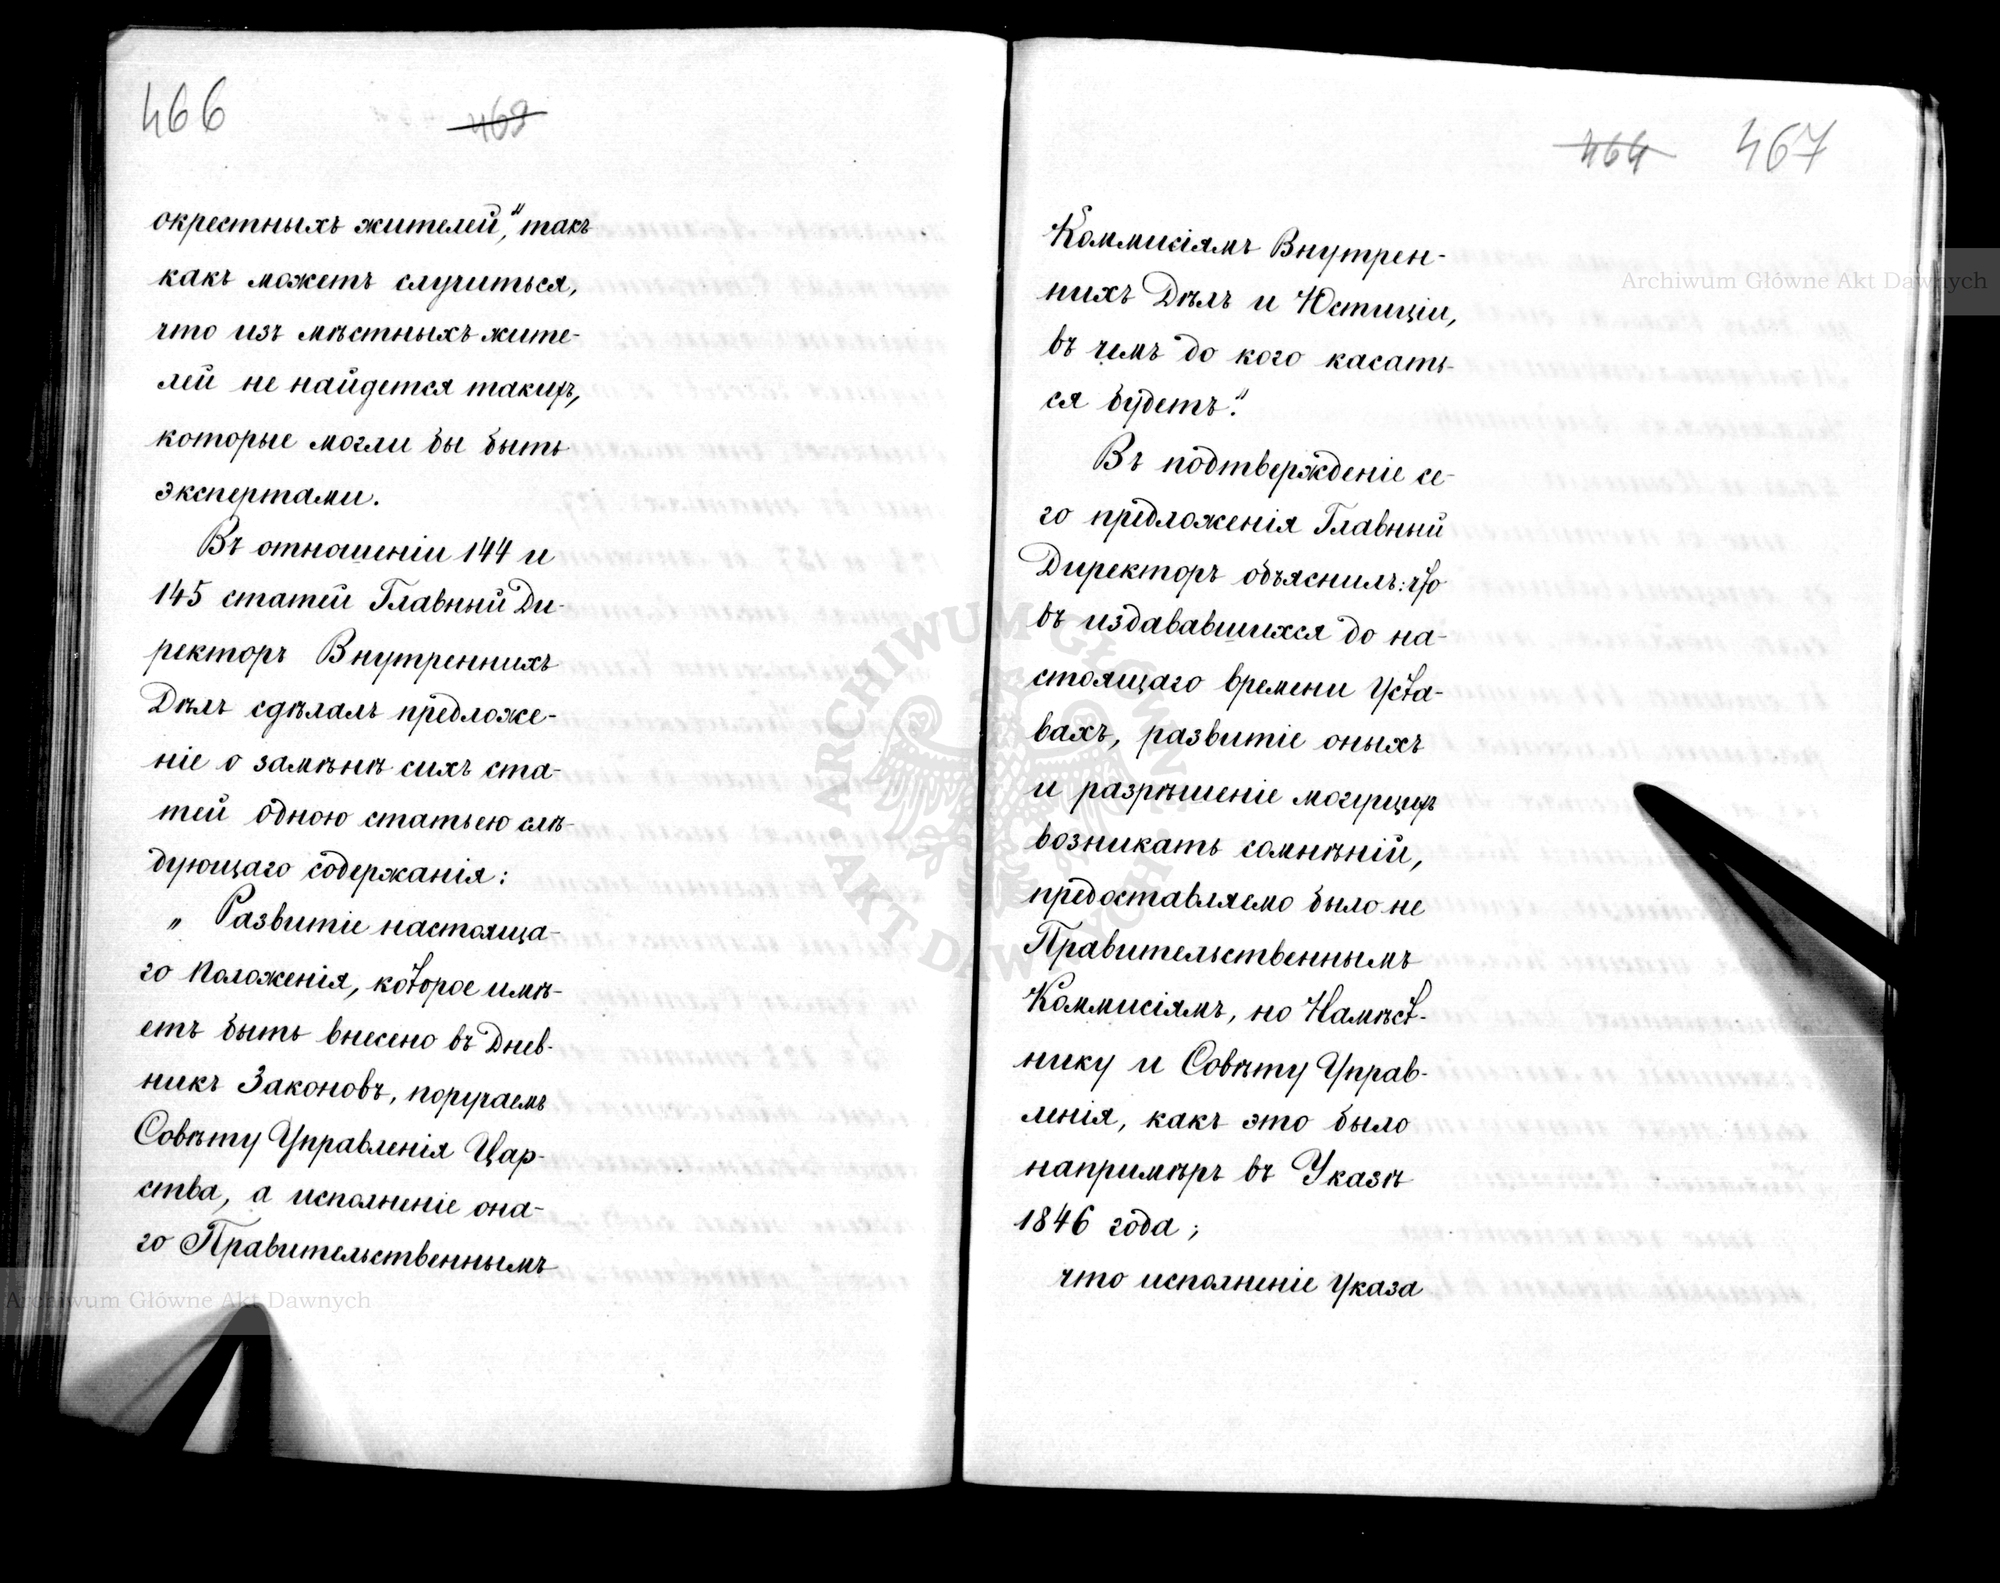 466
463
окрестныхъ жителей", такъ
какъ можетъ случиться,
что изъ мѣстныхъ жите-
лей не найдется такихъ,
которые могли бы быть
экспертами.
Въ отношеніи 144 и
145 статей Главный Ди-
ректоръ Внутреннихъ
Дѣлъ сдѣлалъ предложе-
ніе о замѣнѣ сихъ ста-
тей одною статьею слѣ-
дующаго содержанія:
„ Развитіе настояща-
го Положенія, которое имѣ-
етъ быть внесено въ Днев-
никъ Законовъ, поручаемъ
Совѣту Управленія Цар-
ства, а исполненіе она-
го Правительственнымъ
464
467
Коммисіямъ Внутрен-
нихъ Дѣлъ и Юстиціи,
въ чемъ до кого касать-
ся будетъ."
Въ подтвержденіе се-
го предложенія Главный
Директоръ объяснилъ: что
въ издававшихся до на-
стоящаго времени Уста-
вахъ, развитіе оныхъ
и разрѣшеніе могущихъ
возникать сомнѣній,
предоставляемо было не
Правительственнымъ
Коммисіямъ, но Намѣст-
нику и Совѣту Управ-
ленія, какъ это было
напримѣръ въ Указѣ
1846 года;
что исполненіе Указа
Archiwum Główne Akt Dawnych
Archiwum Główne Akt Dawnych
ARCHIWUM GŁÓWNE AKT DAWNYCH